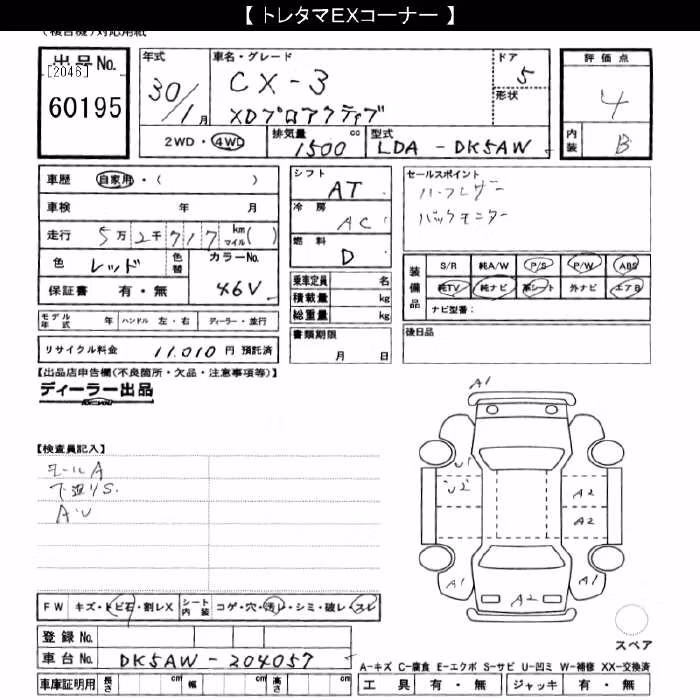 【 トレタマEXコーナー 】
(複合機)対応用紙
出品No.
[2046]
60195
年式
30/1月
車名・グレード
CX-3
XDプロアクティブ
ドア
5
形状
評価点
4
内装
B
2WD・4WD
排気量
1500 cc
型式
LDA-DK5AW
車歴 自家用・( )
車検 年 月
走行 5万2千717 km マイル( )
色 レッド 色替
カラーNo.
46V
保証書 有・無
シフト
AT
冷房
AC
燃料
D
乗車定員 名
積載量 kg
総重量 kg
セールスポイント
ハーフレザー
バックモニター
装備品
S/R 純A/W P/S P/W ABS
純TV 純ナビ 革シート 外ナビ エアB
ナビ型番:
モデル年式 年 ハンドル 左・右 ディーラー・並行
リサイクル料金 11,010 円 預託済
書類期限
月 日
後日品
【出品店申告欄(不良箇所・欠品・注意事項等)】
ディーラー出品
【検査員記入】
モールA
下廻りS.
A・U
A1
U1
U2
A2
A2
A1
A2
A1
FW キズ・トビ石・割レX シート内装 コゲ・穴・汚レ・シミ・破レ・スレ
スペア
登録No.
車台No. DK5AW-204057
A-キズ C-腐食 E-エクボ S-サビ U-凹ミ W-補修 XX-交換済
車庫証明用 長さ cm 幅 cm 高さ cm
工具 有・無 ジャッキ 有・無